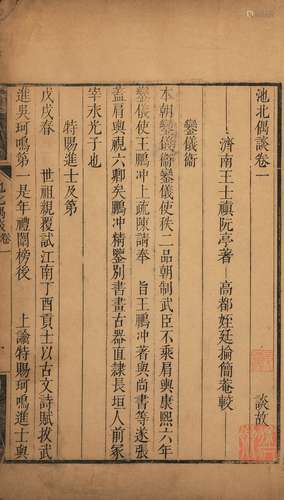 池北偶談卷一
濟南王士禛阮亭著 高都姪廷掄簡菴較
談故
鑾儀衞
本朝鑾儀衞鑾儀使秩二品朝制武臣不乘肩輿康熙六年
鑾儀使王鵬冲上疏陳請奉 旨王鵬冲著與尚書等遂張
蓋肩輿視六卿矣鵬冲精鑒別書畫古器直隸長垣人前冢
宰永光子也
特賜進士及第
戊戌春 世祖親覆試江南丁酉貢士以古文詩賦拔武
進吳珂鳴第一是年禮闈榜後 上諭特賜珂鳴進士與